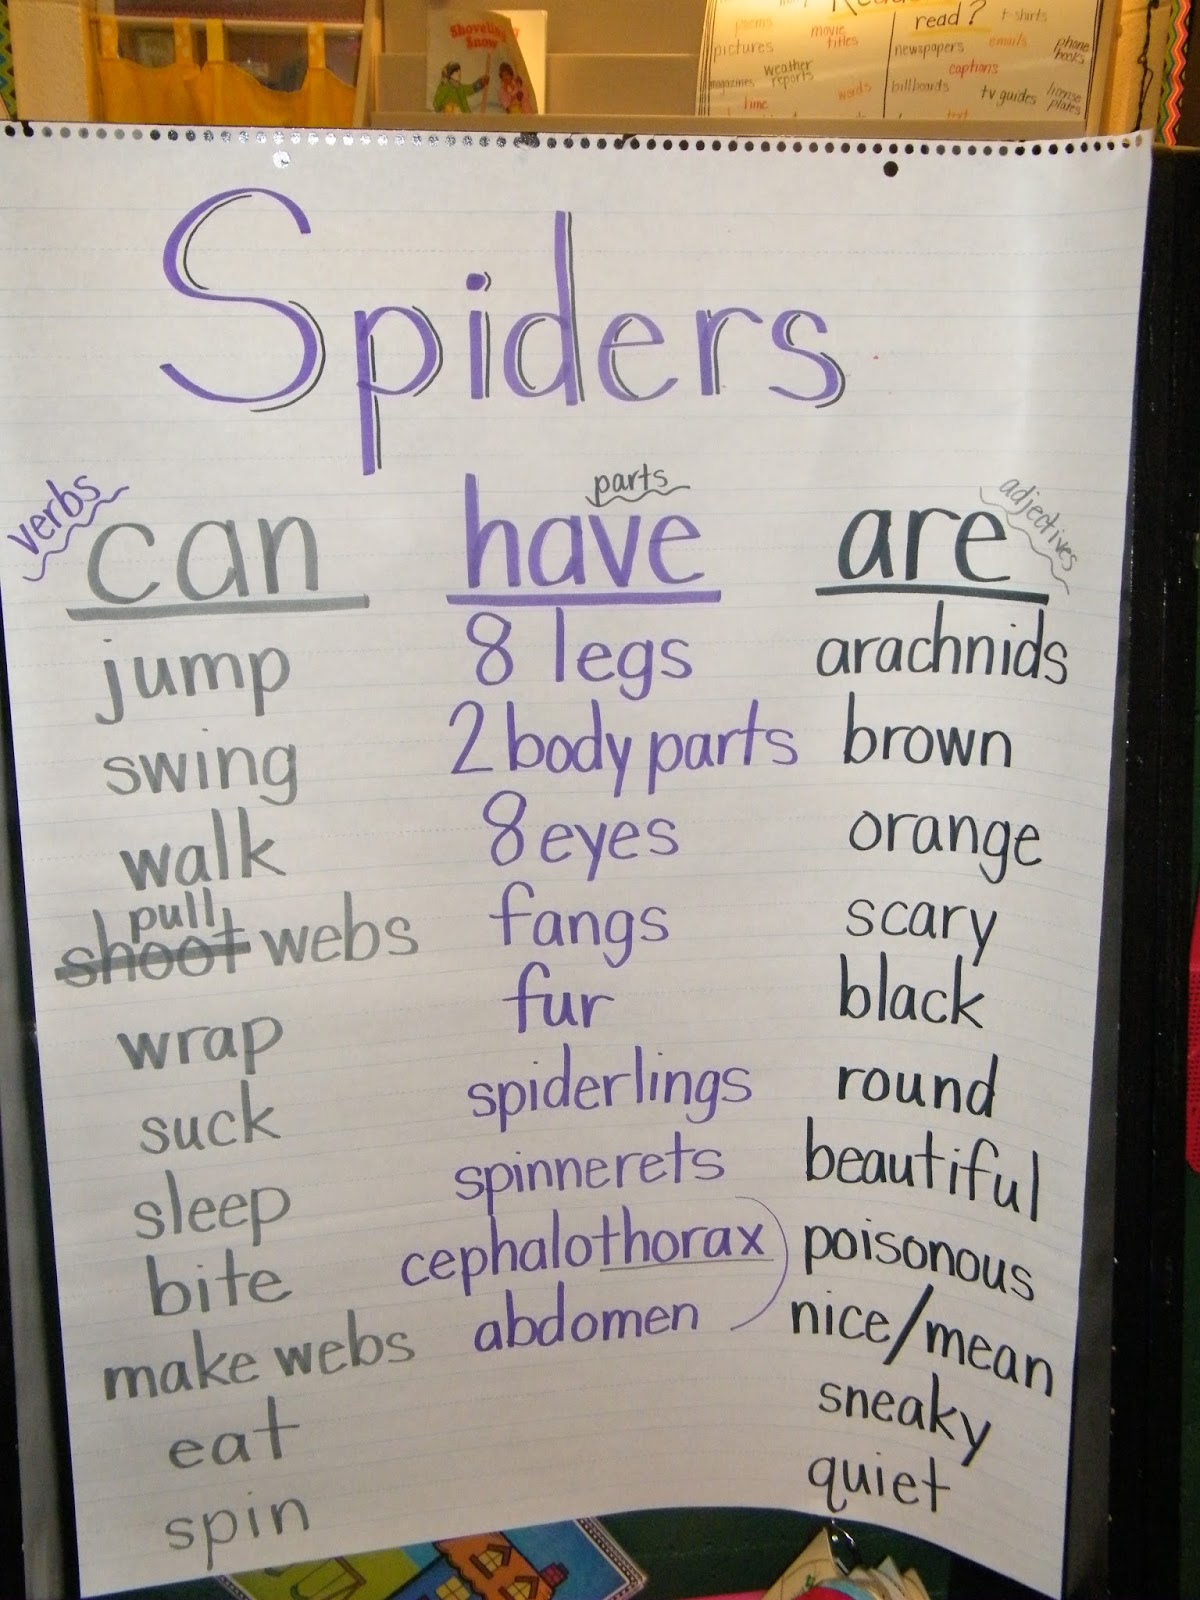 Shoveling
Snow
read?
poems
movie
titles
pictures
weather
reports
magazines
words
time
t-shirts
newspapers
emails
phone
books
captions
billboards
tv guides
license
plates
text
Spiders
verbs
can
jump
swing
walk
pull
shoot webs
wrap
suck
sleep
bite
make webs
eat
spin
parts
have
8 legs
2 body parts
8 eyes
fangs
fur
spiderlings
spinnerets
cephalothorax
abdomen
adjectives
are
arachnids
brown
orange
scary
black
round
beautiful
poisonous
nice/mean
sneaky
quiet